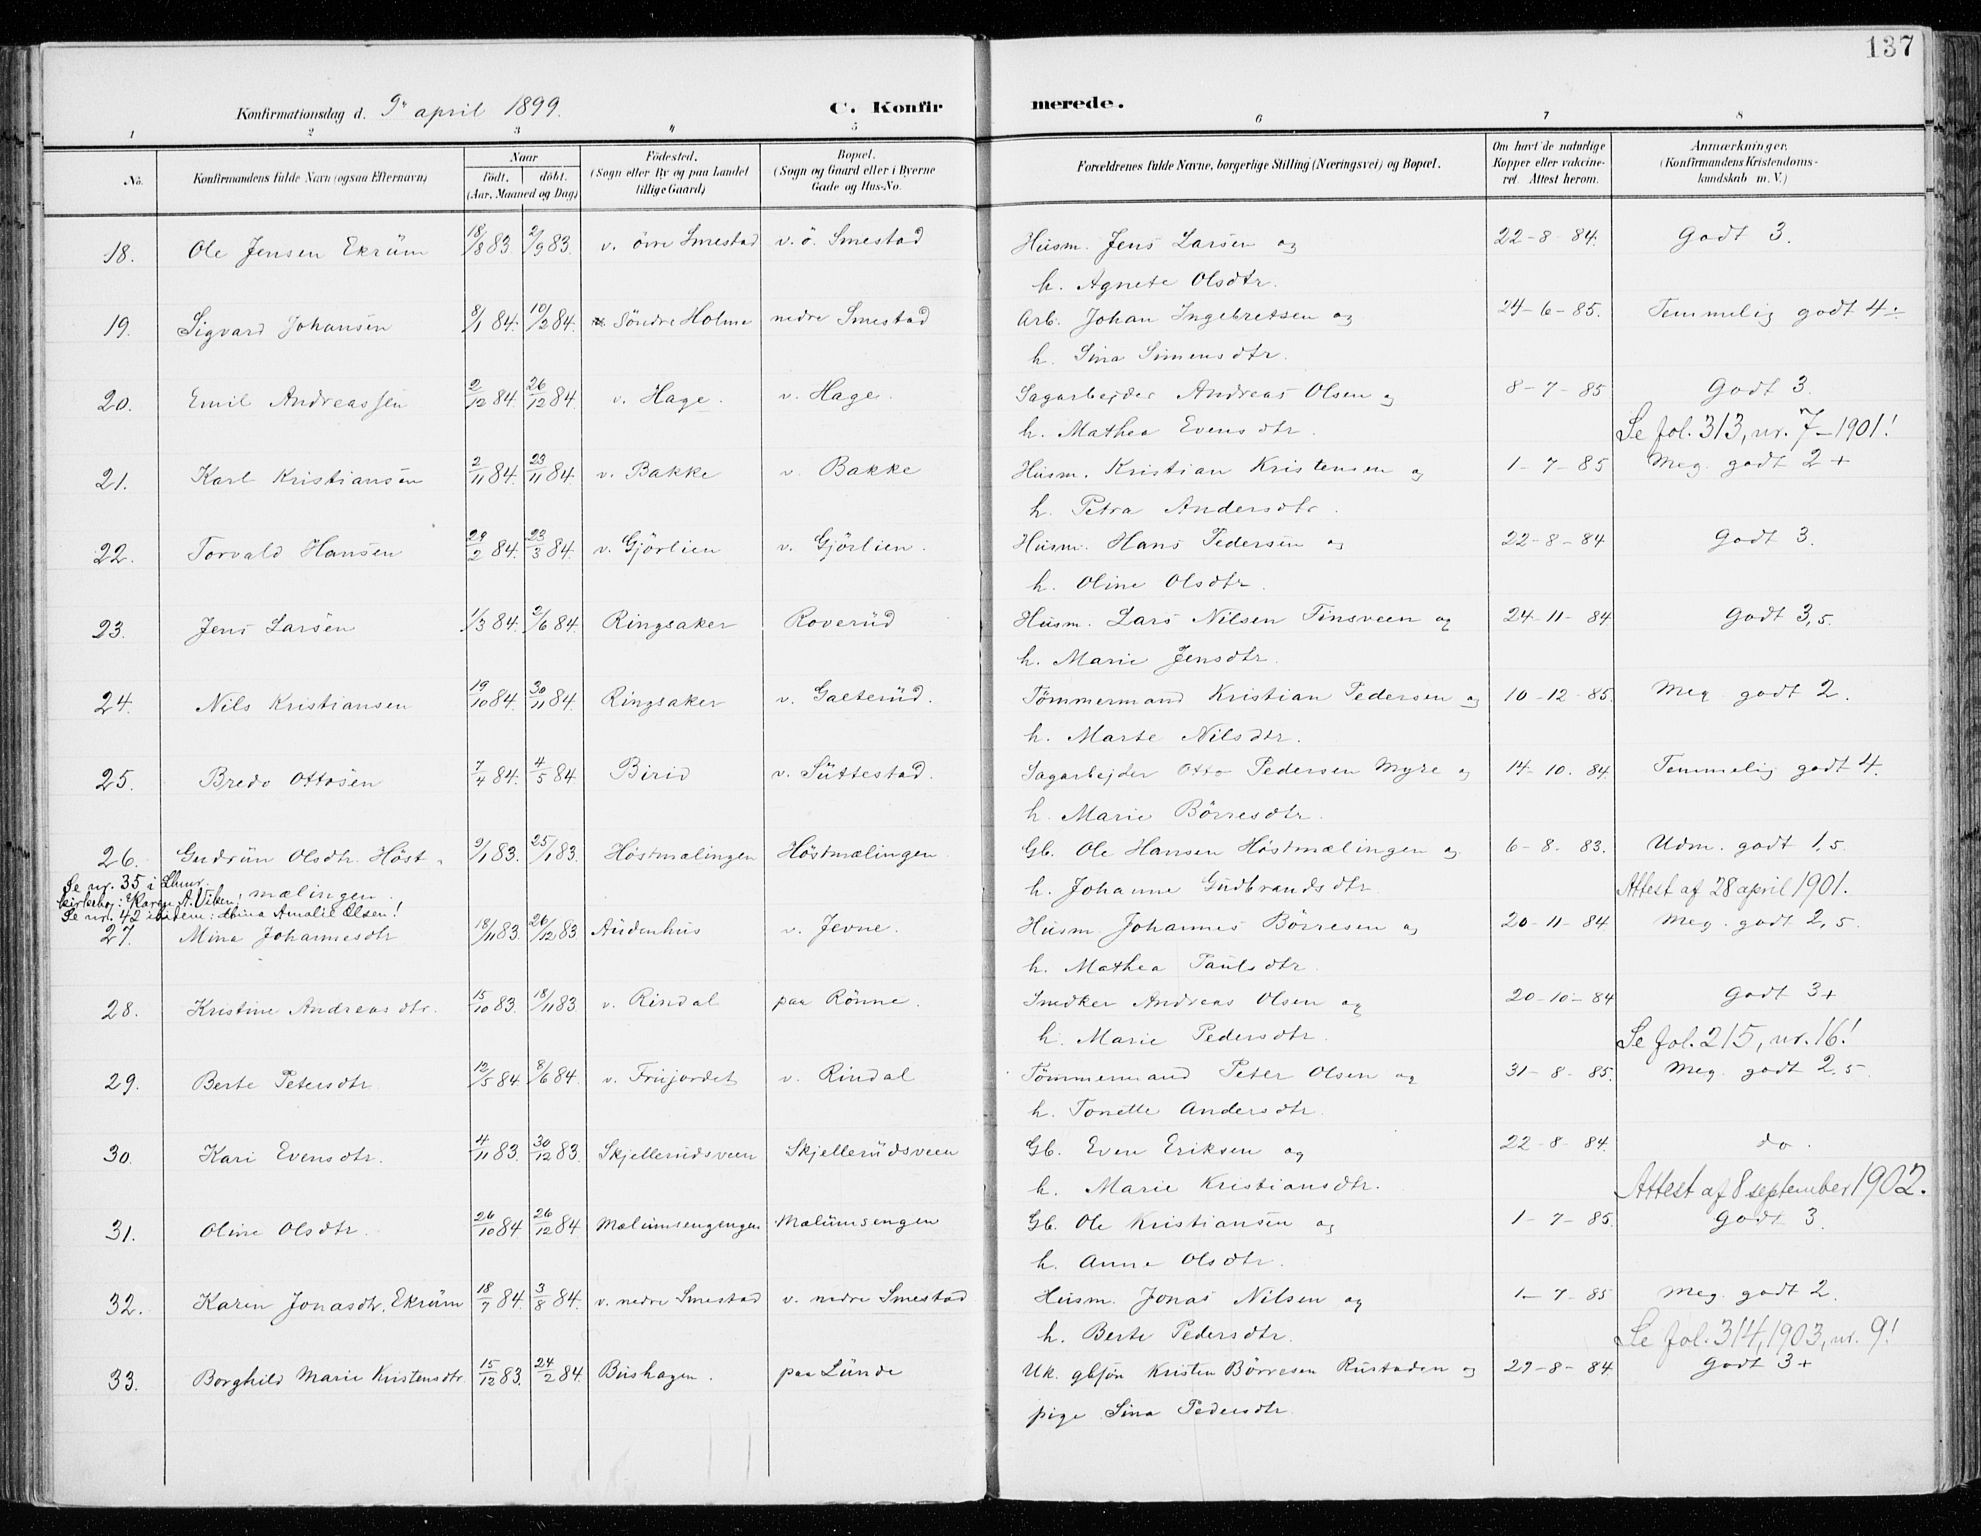 137
Konfirmationsdag d. 9de april 1899.
C. Konfirmerede.
1 2 3 4 5 6 7 8
No. Konfirmandens fulde Navn (ogsaa Efternavn) Naar født. døbt. (Aar, Maaned og Dag) Fødested. (Sogn eller By og paa Landet tillige Gaard) Bopæl. (Sogn og Gaard eller i Byerne Gade og Hus-No. Forældrenes fulde Navne, borgerlige Stilling (Næringsvei) og Bopæl. Om havt de naturlige Kopper eller vakcineret. Attest herom. Anmærkninger. (Konfirmandens Kristendomskundskab m. V.)
18. Ole Jensen Ekrüm 18/8 83 2/9 83. v. övre Smestad v. ö. Smestad Husm. Jens Larsen og 22-8-84. Godt 3.
h. Agnete Olsdtr.
19. Sigvard Johansen 8/1 84. 10/2 84. Söndre Holme nedre Smestad Arb. Johan Ingebretsen og 24-6-85. Temmelig godt 4÷
h. Sina Simensdtr.
20. Emil Andreassen 2/12 84. 26/12 84. v. Hage. v. Hage. Sagarbejder Andreas Olsen og 8-7-85 Godt 3.
h. Mathea Evensdtr. Se fol. 313, nr. 7-1901!
21. Karl Kristiansen 2/11 84. 23/11 84. v. Bakke v. Bakke Husm. Kristian Kristensen og 1-7-85 Meg. godt 2+
h. Petra Andersdtr.
22. Torvald Hansen 29/2 84. 23/3 84. v. Gjörlien v. Gjörlien. Husm. Hans Pedersen og 22-8-84 Godt 3.
h. Oline Olsdtr.
23. Jens Larsen 1/3 84. 2/6 84. Ringsaker Roverüd Husm. Lars Nilsen Finsveen og 24-11-84 Godt 3,5.
h. Marie Jensdtr.
24. Nils Kristiansen 19/10 84. 30/11 84. Ringsaker v. Galterüd. Tömmermand Kristian Pedersen og 10-12-85. Meg. godt 2.
h. Marte Nilsdtr.
25. Bredo Ottosen 7/4 84. 4/5 84 Birid v. Süttestad. Sagarbejder Otto Pedersen Myre og 14-10.84. Temmelig godt 4.
h. Marie Börresdtr.
26. Gudrün Olsdtr. Höst- 9/1 83. 25/1 83. Höstmælingen Höstmælingen. Gb. Ole Hansen Höstmælingen og 6-8.83. Udm. godt 1,5.
Se nr. 35 i
kirkebog: Karen A. Viken, mælingen. h. Johanne Gudbrandsdtr Attest af 28 april 1901.
Se nr. 42 ibidem: Amalie Olsen!
27. Mina Johannesdtr 18/11 83. 26/12 83 Audenhus v. Jevne. Husm. Johannes Börresen og 20-11-84. Meg. godt 2,5.
h. Mathea Paulsdtr.
28. Kristine Andreasdtr. 15/10 83. 18/11 83. v. Rindal paa Rönne. Snedker Andreas Olsen og 20-10-84 Godt 3+
h. Marie Pedersdtr. Se fol. 215, nr. 16!
29. Berte Petersdtr. 12/5 84. 8/6 84. v. Friijordet v. Rindal Tömmermand Peter Olsen og 31-8-85. Meg. godt 2,5.
h. Tonette Andersdtr.
30. Kari Evensdtr. 4/11 83. 30/12 83. Skjellerudsveen Skjellerüdsveen Gb. Even Eriksen og 22-8-84. do.
h. Marie Kristiansdtr. Attest af 8 september 1902.
31. Oline Olsdtr. 26/10 84 26/12 84. Mælumsengengen Mælümsengen Gb. Ole Kristiansen og 1-7-85. Godt 3.
h. Anne Olsdtr.
32. Karen Jonasdtr. Ekrüm 18/7 84. 3/8 84. v. nedre Smestad v. nedre Smestad Husm. Jonas Nilsen og 1-7-85 Meg. godt 2.
h. Berte Pedersdtr. Se fol. 314, 1903, nr. 9!
33. Borghild Marie Kristensdtr. 15/12 83. 24/2 84. Bushagen. paa Lünde Uk. gbsön Kristen Börresen Rustaden og 29-8-84. Godt 3+
pige Sina Pedersdtr.